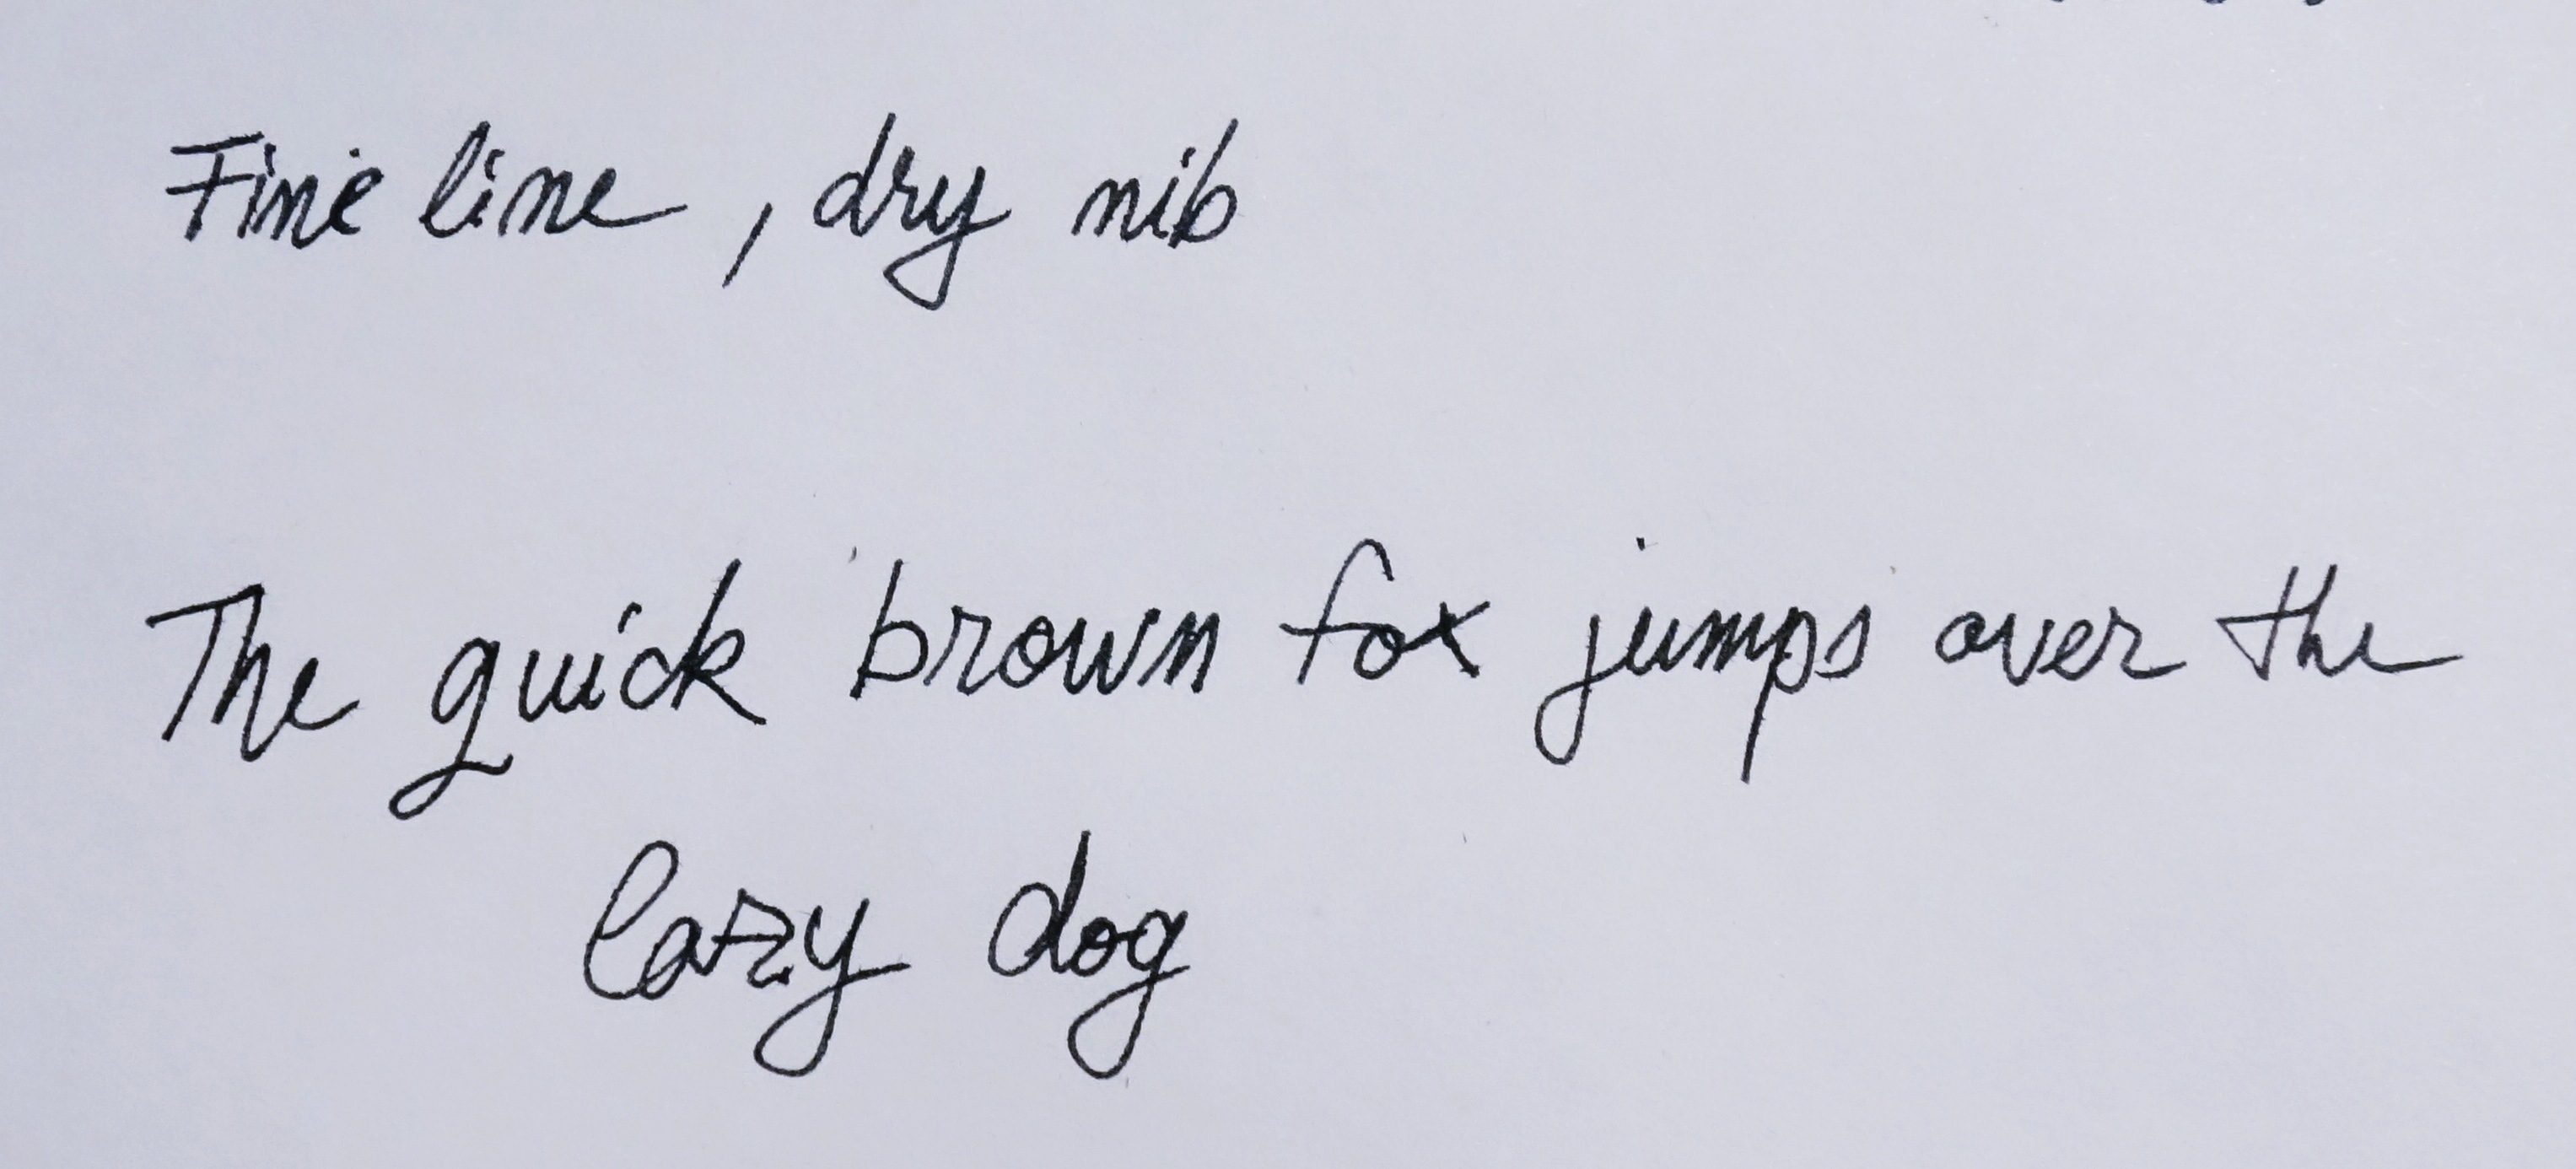 Fine line, dry nib
The quick brown fox jumps over the
lazy dog